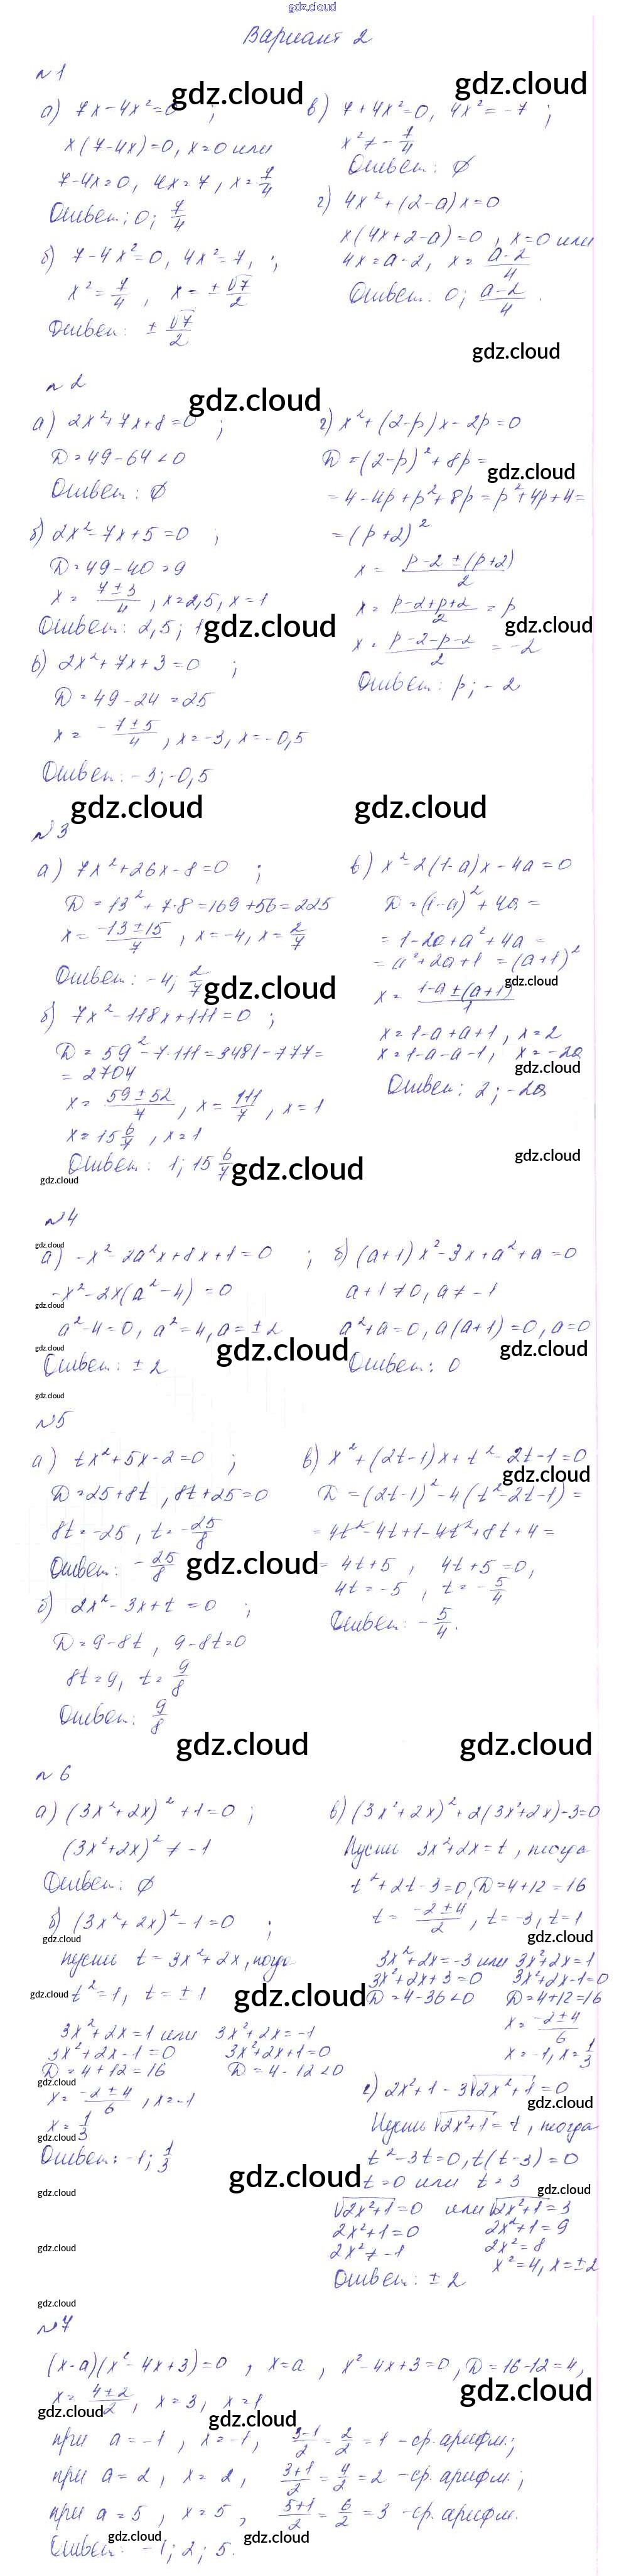 gdz.cloud
Вариант 2
№1
а) 7x-4x²=0 ;
x(7-4x)=0, x=0 или
7-4x=0, 4x=7, x=7/4
Ответ: 0; 7/4
б) 7-4x²=0, 4x²=7, ;
x²=7/4, x=±√7/2
Ответ: ±√7/2
в) 7+4x²=0, 4x²=-7 ;
x²≠-7/4
Ответ: ∅
г) 4x²+(2-a)x=0
x(4x+2-a)=0, x=0 или
4x=a-2, x=(a-2)/4
Ответ: 0; (a-2)/4.
gdz.cloud
№2
а) 2x²+7x+8=0 ;
D=49-64<0
Ответ: ∅
б) 2x²-7x+5=0 ;
D=49-40=9
x=(7±3)/4, x=2,5, x=1
Ответ: 2,5; 1
в) 2x²+7x+3=0 ;
D=49-24=25
x=-7±5/4, x=-3, x=-0,5
Ответ: -3; -0,5
г) x²+(2-p)x-2p=0
D=(2-p)²+8p=
=4-4p+p²+8p=p²+4p+4=
=(p+2)²
x=(p-2±(p+2))/2
x=(p-2+p+2)/2=p
x=(p-2-p-2)/2=-2
Ответ: p; -2
gdz.cloud gdz.cloud
№3
а) 7x²+26x-8=0 ;
D=13²+7·8=169+56=225
x=(-13±15)/7, x=-4, x=2/7
Ответ: -4; 2/7
б) 7x²-118x+111=0 ;
D=59²-7·111=3481-777=
=2704
x=(59±52)/7, x=111/7, x=1
x=15 6/7, x=1
Ответ: 1; 15 6/7
в) x²-2(1-a)x-4a=0
D=(1-a)²+4a=
=1-2a+a²+4a=
=a²+2a+1=(a+1)²
x=(1-a±(a+1))/1
x=1-a+a+1, x=2
x=1-a-a-1, x=-2a
Ответ: 2; -2a
gdz.cloud
№4
а) -x²-2a²x+8x+1=0 ;
-x²-2x(a²-4)=0
a²-4=0, a²=4, a=±2
Ответ: ±2
б) (a+1)x²-3x+a²+a=0
a+1≠0, a≠-1
a²+a=0, a(a+1)=0, a=0
Ответ: 0
gdz.cloud
№5
а) tx²+5x-2=0 ;
D=25+8t, 8t+25=0
8t=-25, t=-25/8
Ответ: -25/8
б) 2x²-3x+t=0 ;
D=9-8t, 9-8t=0
8t=9, t=9/8
Ответ: 9/8
в) x²+(2t-1)x+t²-2t-1=0
D=(2t-1)²-4(t²-2t-1)=
=4t²-4t+1-4t²+8t+4=
=4t+5, 4t+5=0,
4t=-5, t=-5/4
Ответ: -5/4.
gdz.cloud gdz.cloud
№6
а) (3x²+2x)²+1=0 ;
(3x²+2x)²≠-1
Ответ: ∅
б) (3x²+2x)²-1=0 ;
пусть t=3x²+2x, тогда
t²=1, t=±1
3x²+2x=1 или 3x²+2x=-1
3x²+2x-1=0 3x²+2x+1=0
D=4+12=16 D=4-12<0
x=(-2±4)/6, x=-1
x=1/3
Ответ: -1; 1/3
в) (3x²+2x)²+2(3x²+2x)-3=0
Пусть 3x²+2x=t, тогда
t²+2t-3=0, D=4+12=16
t=(-2±4)/2, t=-3, t=1
3x²+2x=-3 или 3x²+2x=1
3x²+2x+3=0 3x²+2x-1=0
D=4-36<0 D=4+12=16
x=(-2±4)/6
x=-1, x=1/3
г) 2x²+1-3√2x²+1=0
Пусть √2x²+1=t, тогда
t²-3t=0, t(t-3)=0
t=0 или t=3
√2x²+1=0 или √2x²+1=3
2x²+1=0 2x²+1=9
2x²≠-1 2x²=8
x²=4, x=±2
Ответ: ±2
gdz.cloud
№7
(x-a)(x²-4x+3)=0, x=a, x²-4x+3=0, D=16-12=4,
x=(4±2)/2, x=3, x=1
при a=-1, x=-1, (3-1)/2=2/2=1 -ср. арифм.;
при a=2, x=2, (3+1)/2=4/2=2 -ср. арифм.;
при a=5, x=5, (5+1)/2=6/2=3 -ср. арифм.
Ответ: -1; 2; 5.
gdz.cloud gdz.cloud